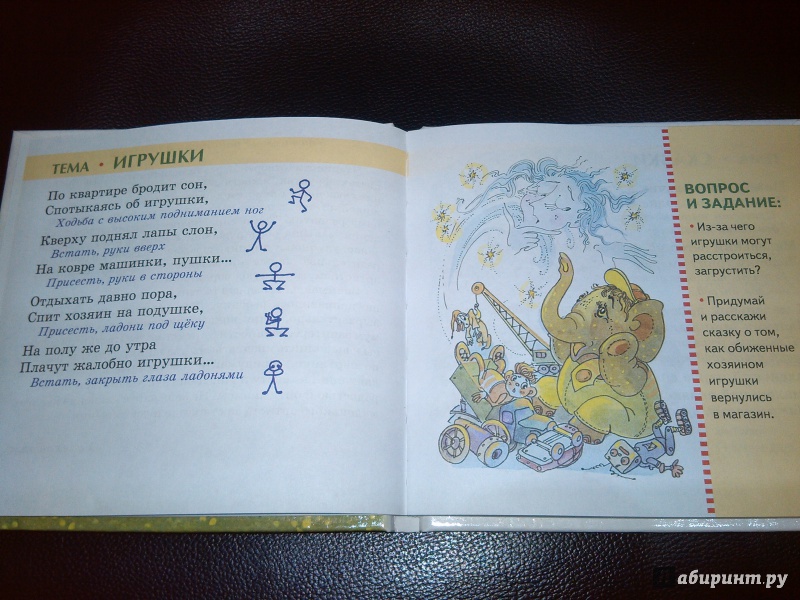 ТЕМА • ИГРУШКИ
По квартире бродит сон,
Спотыкаясь об игрушки,
Ходьба с высоким подниманием ног
Кверху поднял лапы слон,
Встать, руки вверх
На ковре машинки, пушки...
Присесть, руки в стороны
Отдыхать давно пора,
Спит хозяин на подушке,
Присесть, ладони под щёку
На полу же до утра
Плачут жалобно игрушки...
Встать, закрыть глаза ладонями
ВОПРОС
И ЗАДАНИЕ:
• Из-за чего
игрушки могут
расстроиться,
загрустить?
• Придумай
и расскажи
сказку о том,
как обиженные
хозяином
игрушки
вернулись
в магазин.
Лабиринт.ру